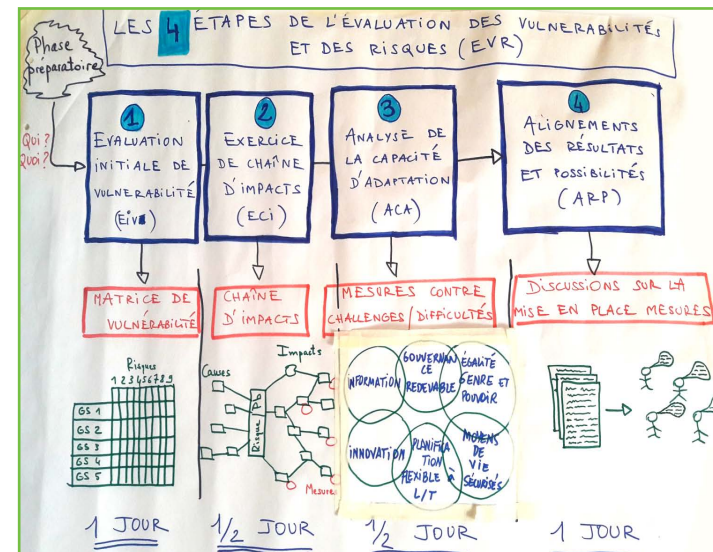 LES 4 ÉTAPES DE L'ÉVALUATION DES VULNERABILITÉS
ET DES RISQUES (EVR)
Phase
préparatoire
Qui ?
Quoi ?
1
EVALUATION
INITIALE DE
VULNERABILITÉ
(EiV)
2
EXERCICE
DE CHAÎNE
D'IMPACTS
(ECi)
3
ANALYSE DE
LA CAPACITÉ
D'ADAPTATION
(ACA)
4
ALIGNEMENTS
DES RÉSULTATS
ET POSSIBILITÉS
(ARP)
MATRICE DE
VULNÉRABILITÉ
CHAÎNE
D'IMPACTS
MESURES CONTRE
CHALLENGES/DIFFICULTÉS
DISCUSSIONS SUR LA
MISE EN PLACE MESURES
Risques
1 2 3 4 5 6 7 8 9
GS 1
GS 2
GS 3
GS 4
GS 5
Impacts
Causes
Risque Pb
Mesures
INFORMATION
GOUVERNAN
CE
REDEVABLE
ÉGALITÉ
GENRE ET
POUVOIR
INNOVATION
PLANIFICA
TION
FLEXIBLE à
L/T
MOYENS
DE
VIE
SÉCURISÉS
1 JOUR
1/2 JOUR
1/2 JOUR
1 JOUR